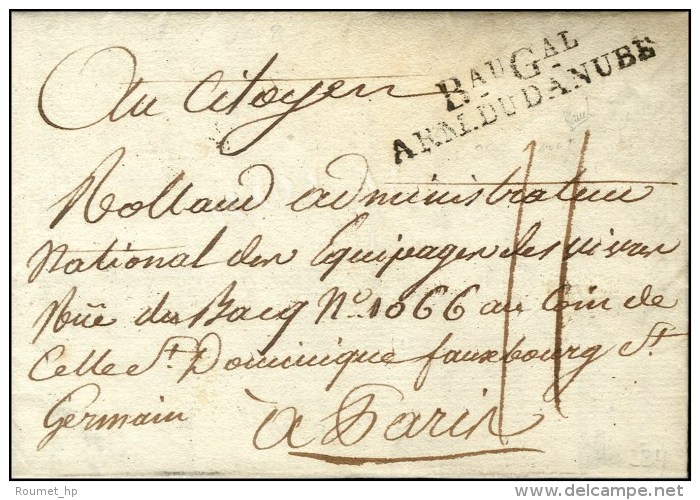 Au Citoyen
BAU GAL
ARM. DU DANUBE
Rolland administrateur
National des Equipages des vivres
Rüe du Bacq N.º 1066 au Coin de
Celle St. Dominique fauxbourg St.
Germain
à Paris
11
Roumet_hp
delcampe.net